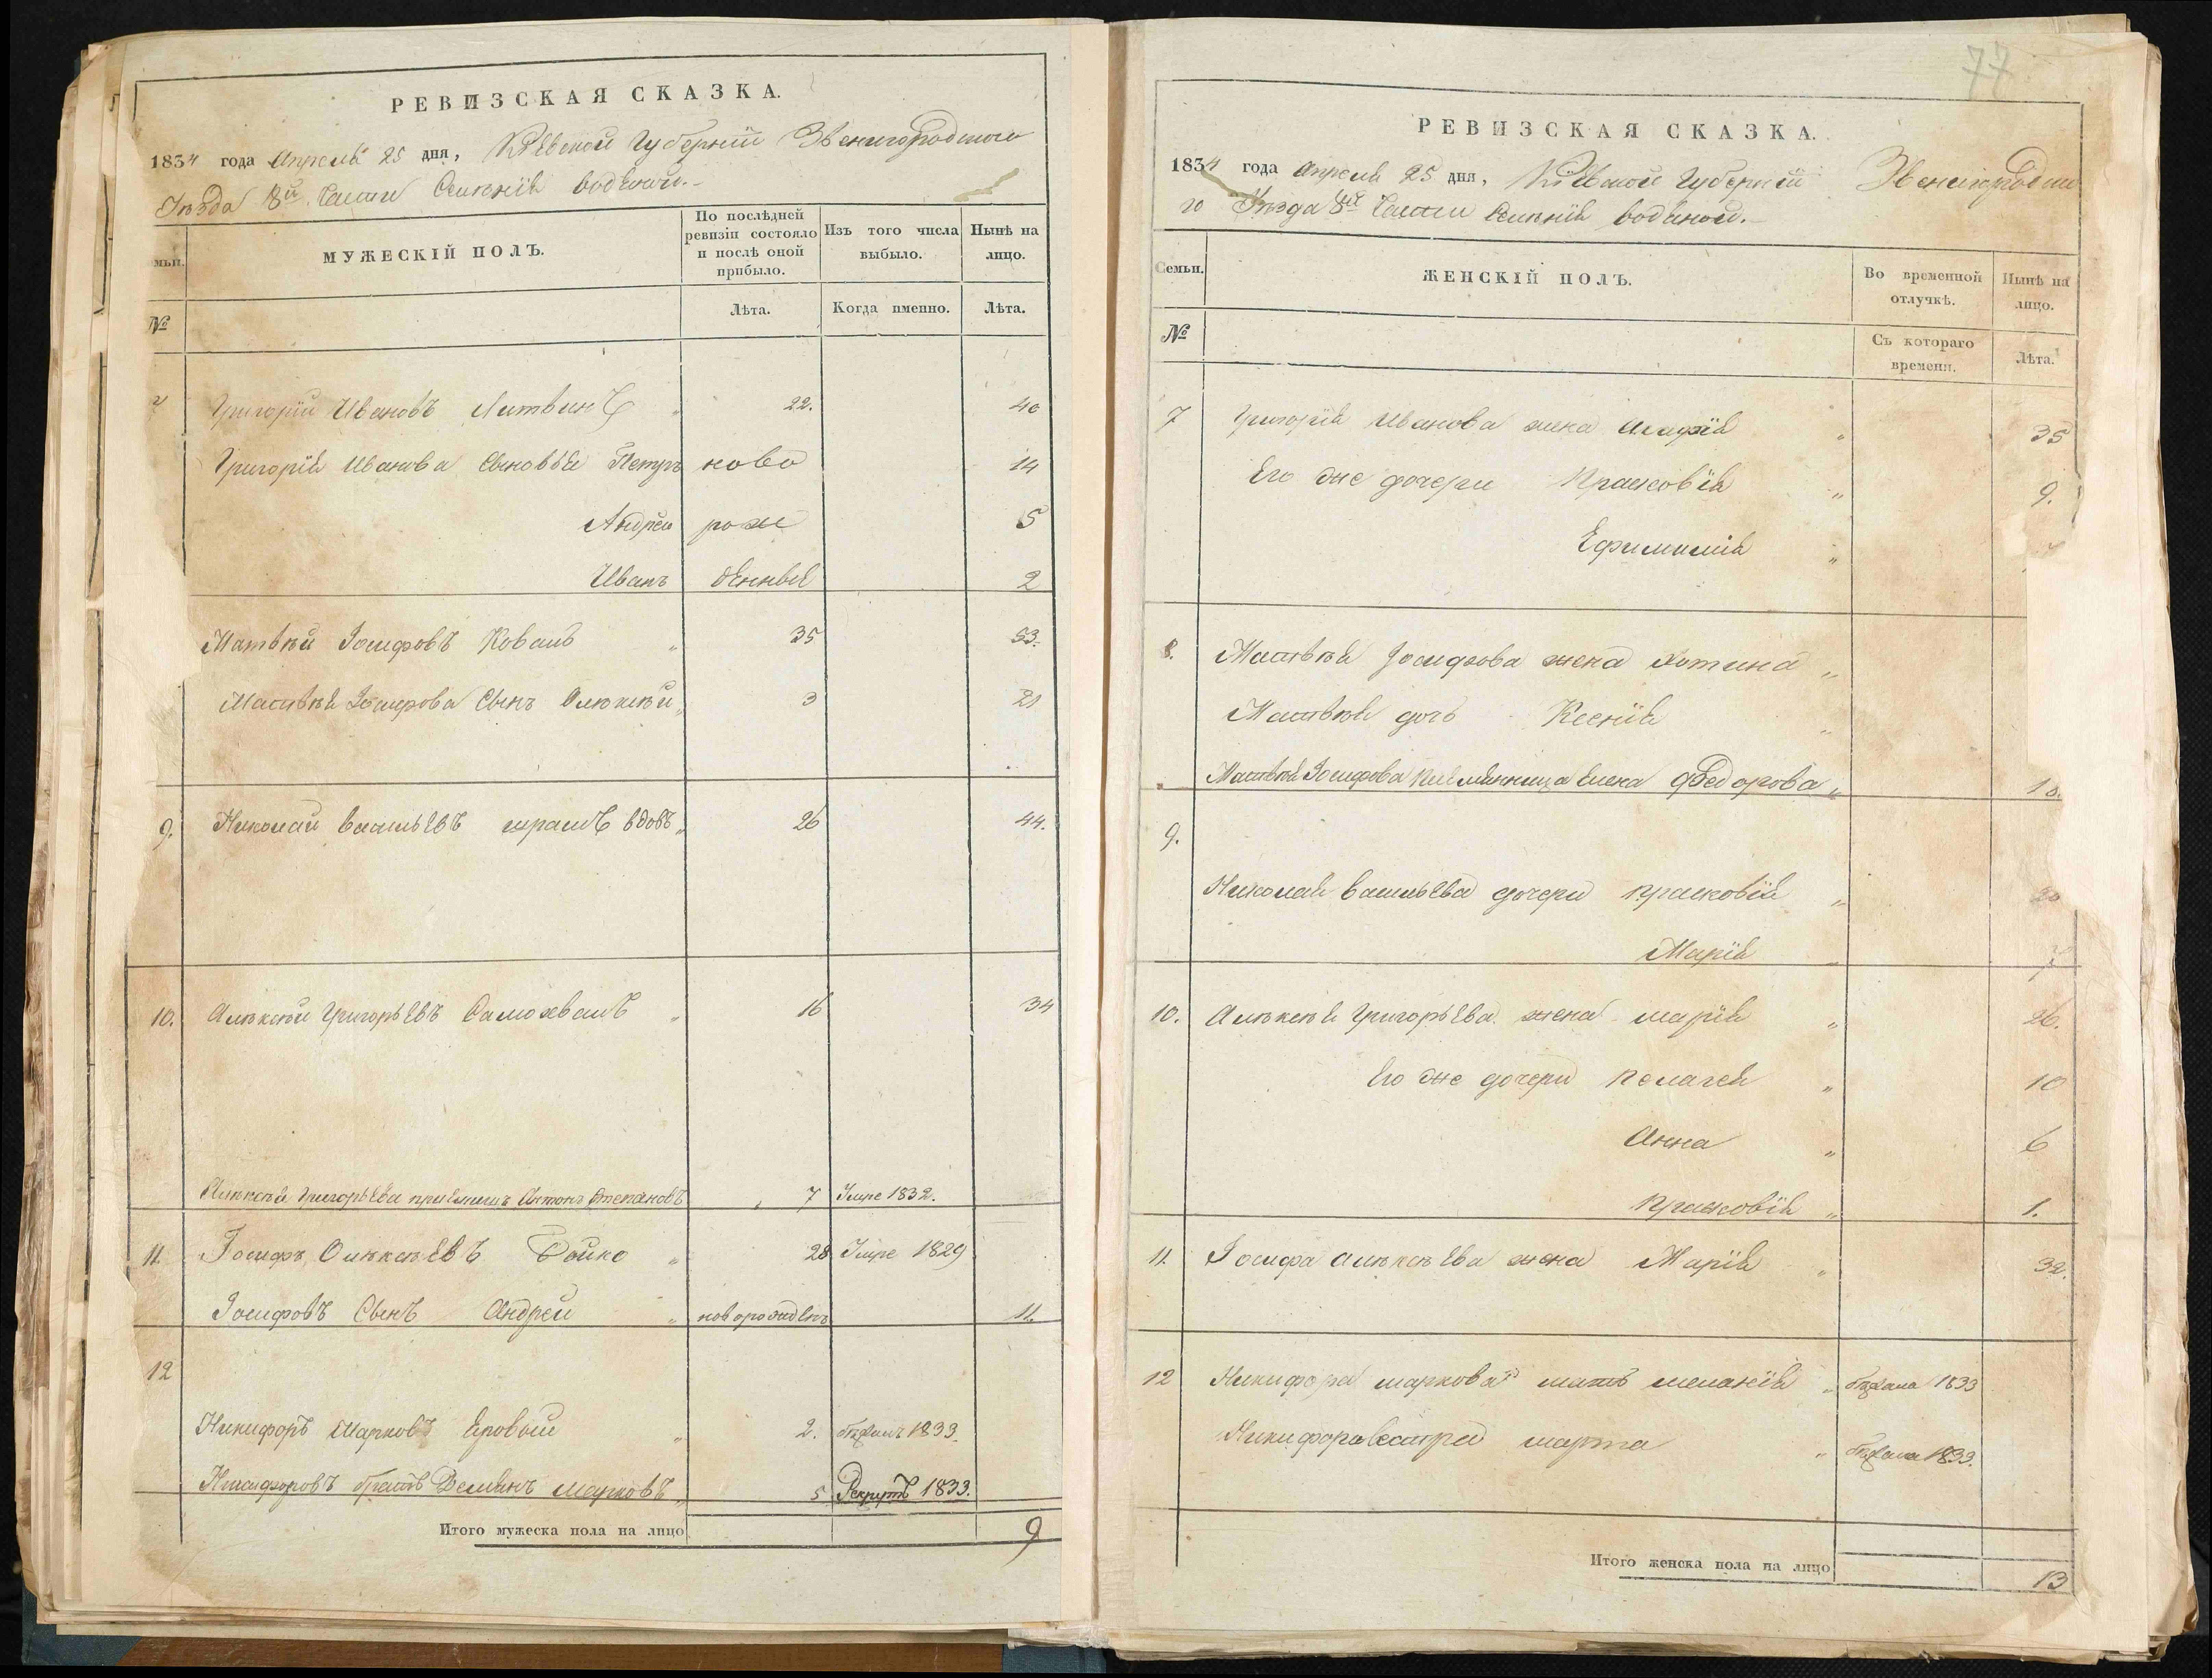 РЕВИЗСКАЯ СКАЗКА.
1834 года Апреля 25 дня, Кіевской Губерніи Звенигородского
Уезда 8й части Селенія Водяной.
мьи.
МУЖЕСКІЙ ПОЛЪ.
По послѣдней ревизіи состояло и послѣ оной прибыло.
Изъ того числа выбыло.
Нынѣ на лицо.
№
Лѣта.
Когда именно.
Лѣта.
Григорій Ивановъ Литвинъ " 22. 40
Григорія Иванова Сыновья Петръ ново 14
Андрей рож 5
Иванъ денныя 2
Матвѣй Іосифовъ Коваль " 35 53.
Матвѣя Іосифова Сынъ Алѣксѣй " 3 21
9. Николай васильевъ вдовъ " 26 44.
10. Алѣксѣй Григорьевъ Самохвалъ " 16 34
Алѣксѣя Григорьева приемышъ Антонъ Степановъ 7 Умре 1832.
11. Іосифъ Алѣксѣевъ Бойко " 28 Умре 1829
Іосифовъ Сынъ Андрей " новорожденъ 11.
12
Никифоръ Марковъ Яровый " 2. отданъ 1833
Никифоровъ братъ Демянъ марковъ " 5 Рекрутъ 1833.
Итого мужеска пола на лицо 9
77
РЕВИЗСКАЯ СКАЗКА.
1834 года Апреля 25 дня, Кіевской Губерніи Звенигородска
го Уезда 8й части Селенія Водяной.
Семьи.
ЖЕНСКІЙ ПОЛЪ.
Во временной отлучкѣ.
Нынѣ на лицо.
№
Съ котораго времени.
Лѣта.
7 Григорія Иванова жена Агафія " 35
Его же дочери Прасковія " 9.
Ефимимія "
8. Матвѣя Іосифова жена Хотина "
Матвѣя дочь Ксенія "
Матвѣя Іосифова племянница Елена Федорова "
9.
Николая васильева дочери прасковія " 20
Марія "
10. Алѣксѣя Григорьева жена марія " 26.
Его же дочери Пелагея " 10
Анна " 6
Прасковія " 1.
11. Іосифа Алѣксѣева жена Марія " 32.
12 Никифора маркова мать меланія " отдана 1833
Никифора сестра марта " отдана 1833.
Итого женска пола на лицо 13